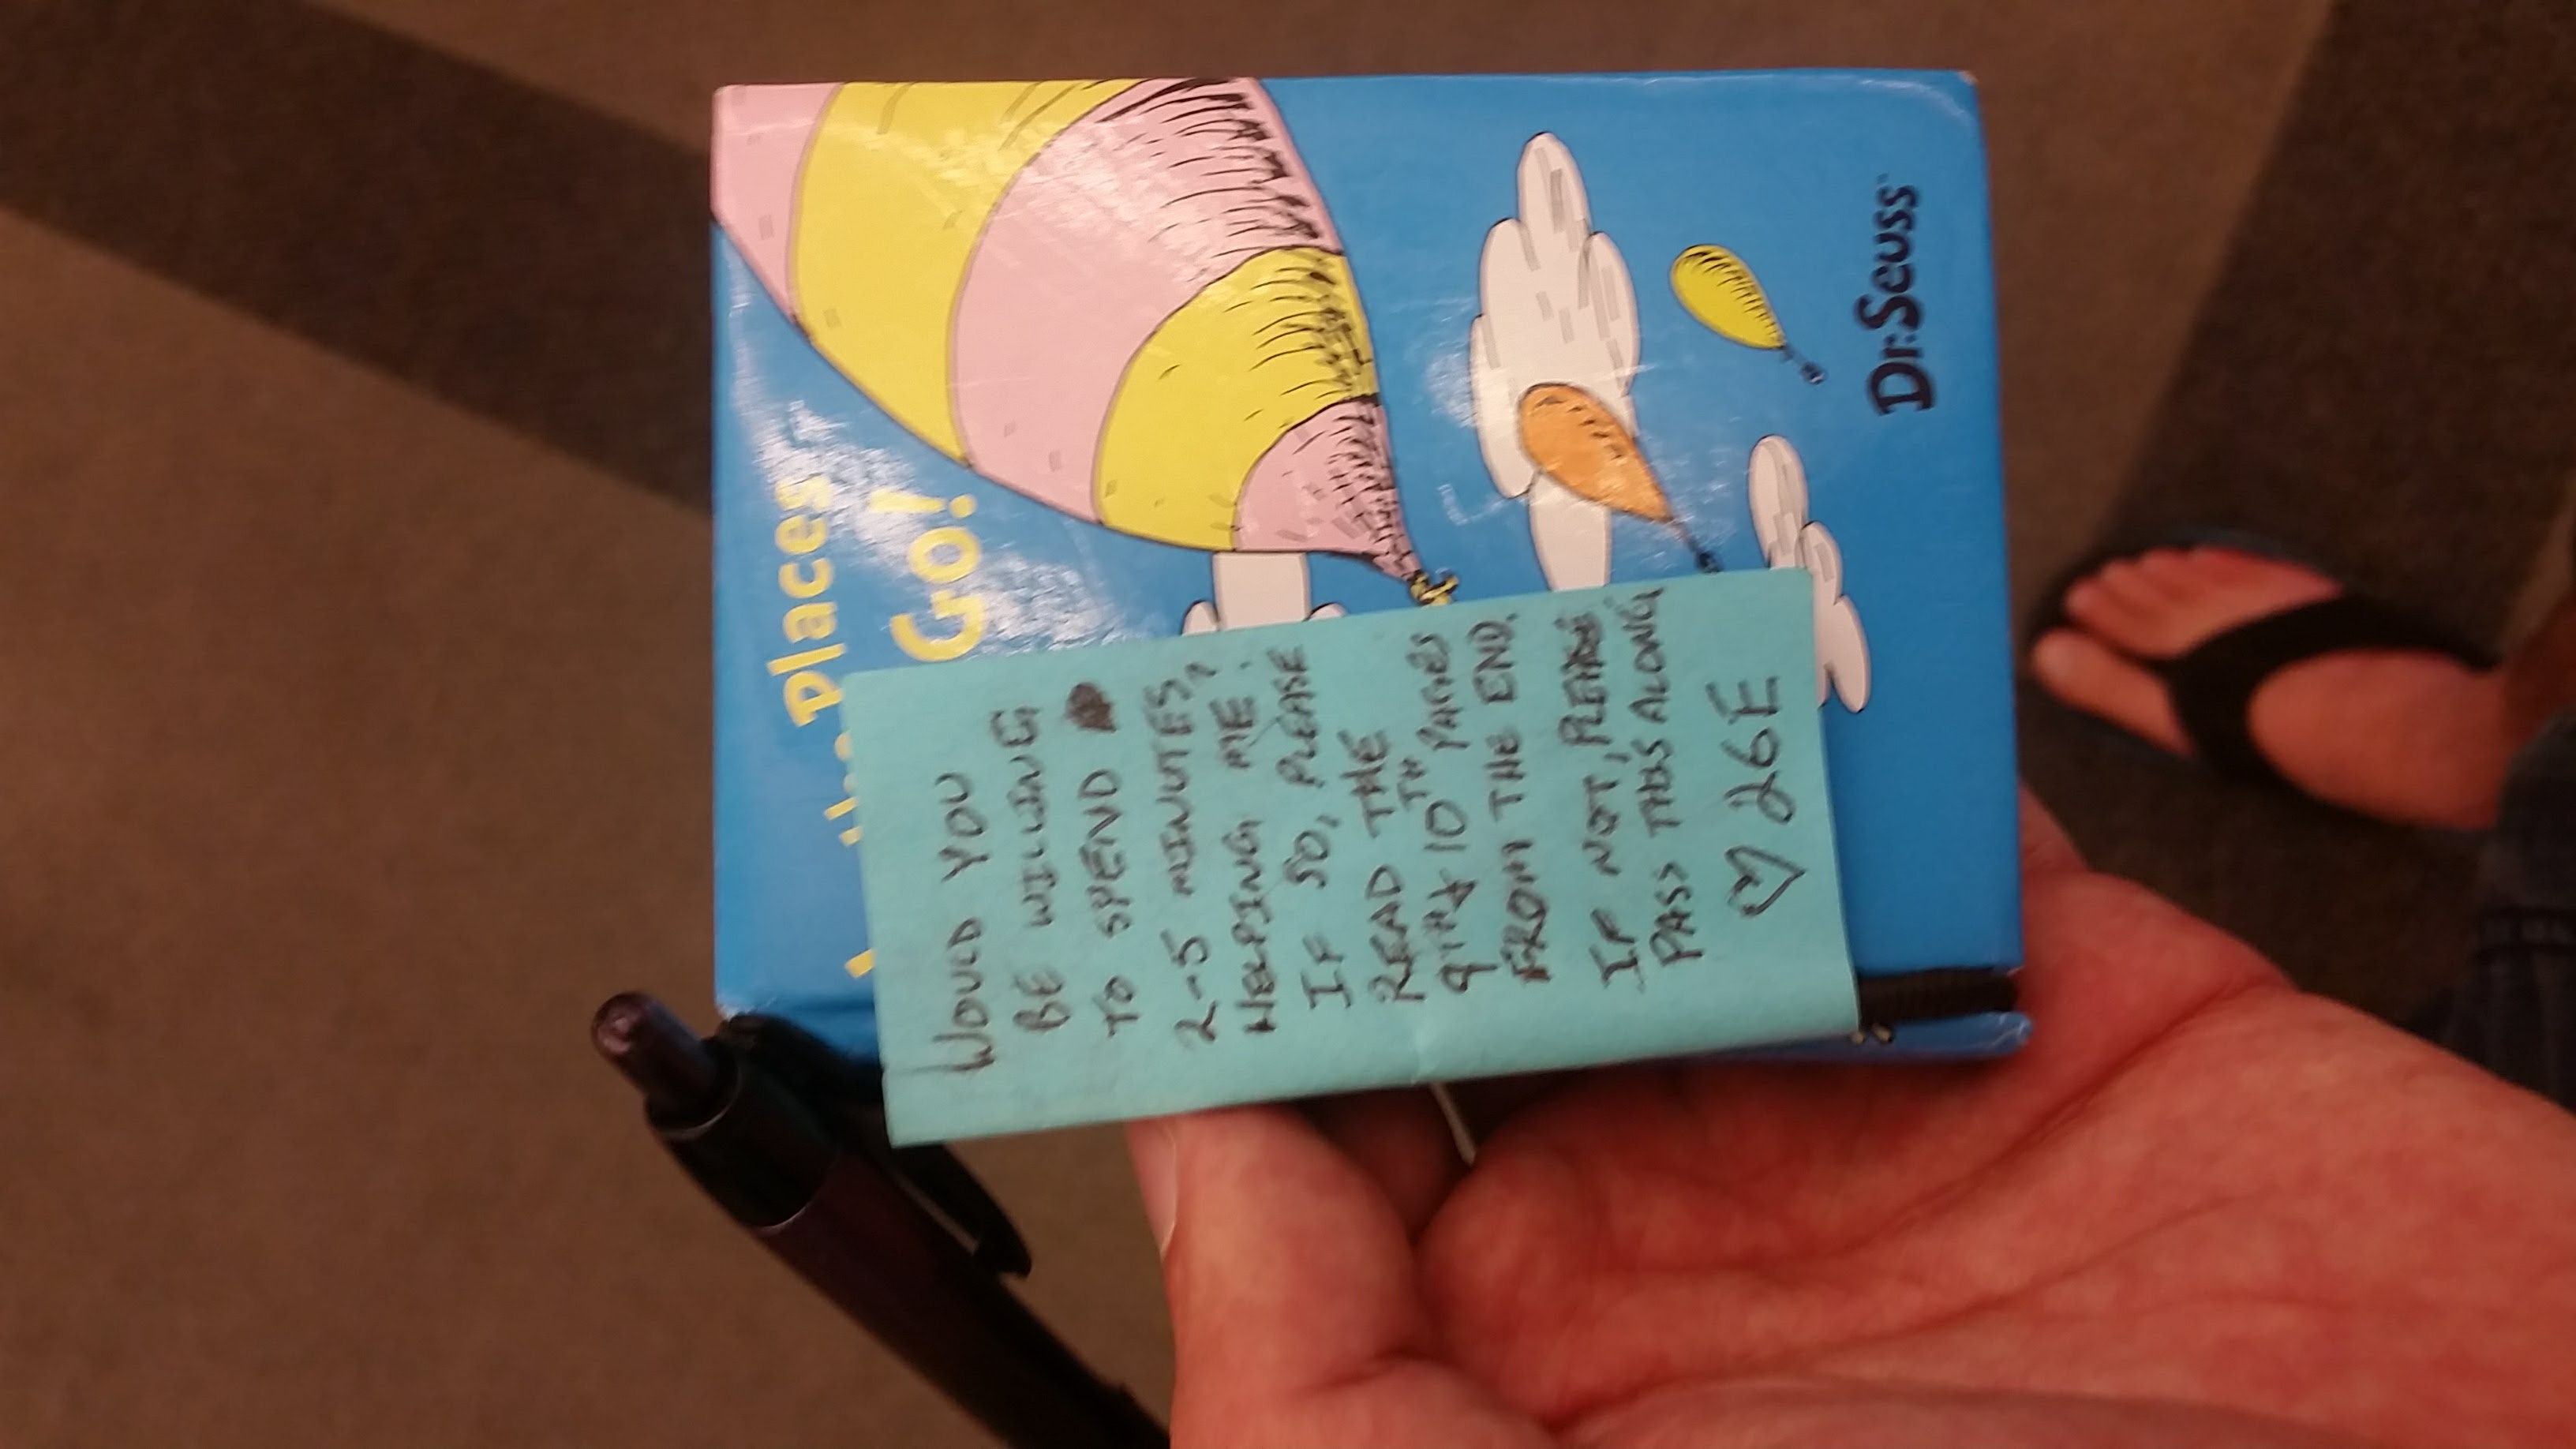 the Places
Go!
WOULD YOU
BE WILLING
TO SPEND
2-5 MINUTES,
HELPING ME?
IF SO, PLEASE
READ THE
9TH & 10TH PAGES
FROM THE END.
IF NOT, PLEASE
PASS THIS ALONG
♡ 26E
Dr. Seuss